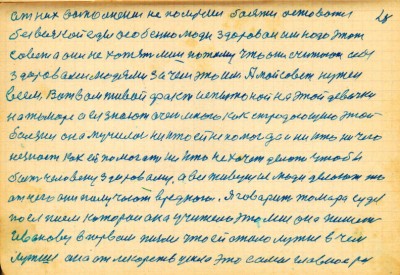 от них выполнении не получил боятся остовотся
без всякой еди особенно люди здоровои им надо этот
совет а они не хотят им потому что они считают себя
здоровыми людьми зачем это им А мой совет нужен
всем Вот вам живой факт испытаной на этой девочки
на тамаре а ее знают очень много как страдающию этой
болезни она мучилась никто ей не помогал и никто ничего
незнает как ей помогат никто не хочет делать чтобы
быть человеку здоровому, а все живущие люди делают то
от чего они получают вредного. Я говарит тамара суди
по ее писем которая она учителю это мне она пишет
Иванову в первом писме что ей стало лутше в чем
лутше она от лекарств ушла это самое главное